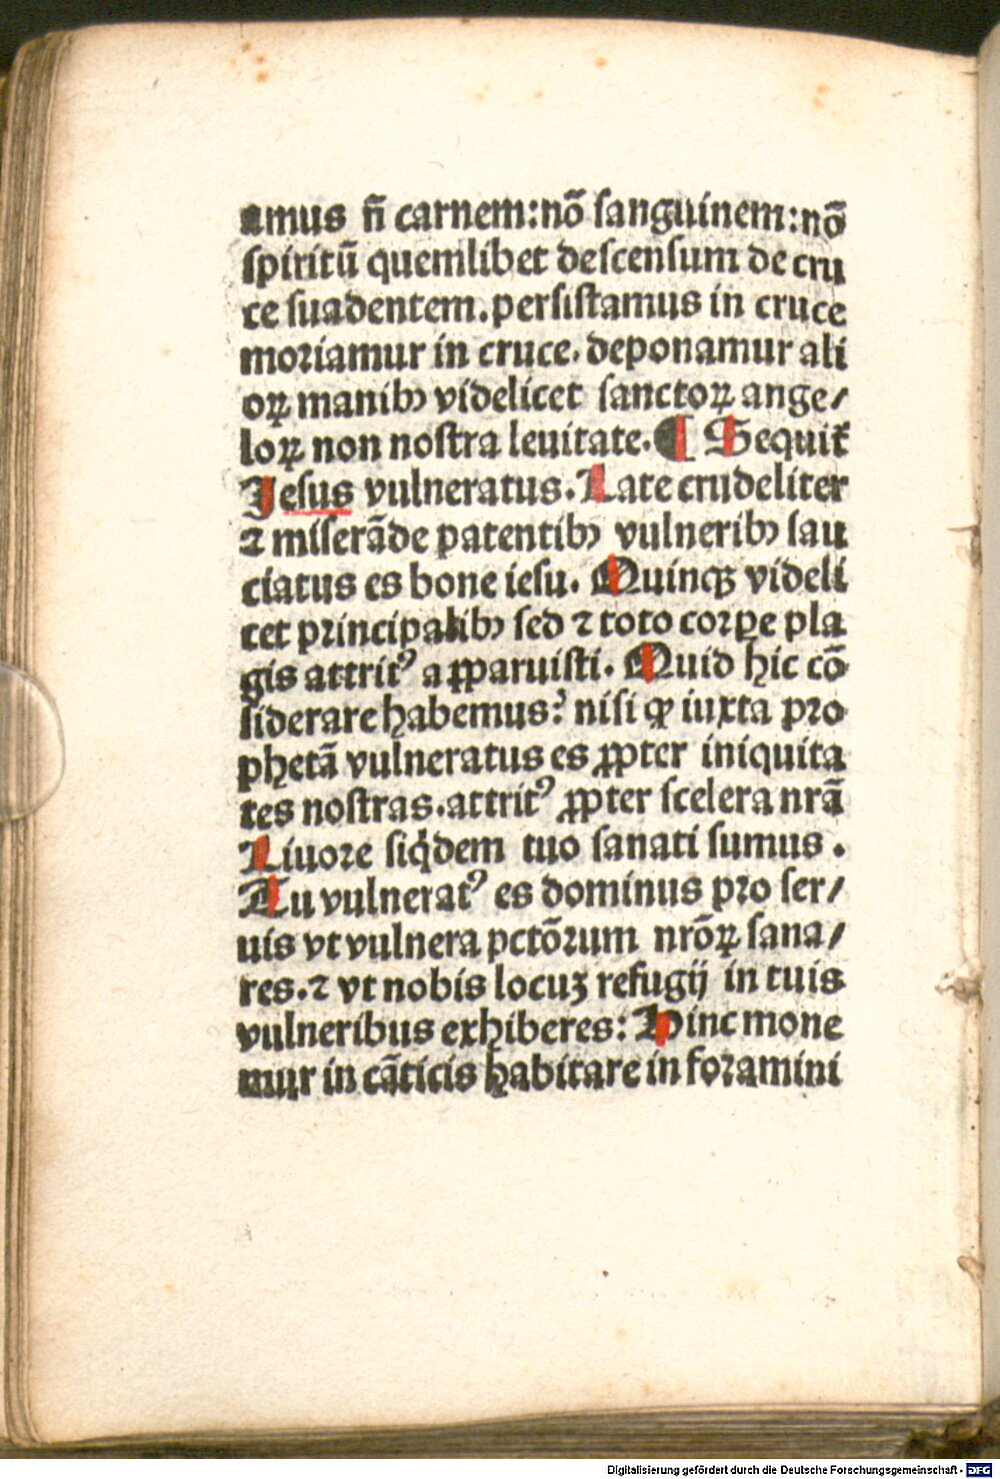 amus n̄ carnem:nō sanguinem:nō
spiritū quemlibet descensum de cru
ce suadentem.persistamus in cruce
moriamur in cruce. deponamur ali
oꝝ manibꝰ videlicet sanctoꝝ ange/
loꝝ non nostra leuitate. ¶ Sequit᷑
Jesus vulneratus. Late crudeliter
⁊ miserāde patentibꝰ vulneribꝰ sau
ciatus es bone iesu. Quinqꝫ videli
cet principalibꝰ sed ⁊ toto corꝑe pla
gis attritꝰ aꝑparuisti. Quid hic cō
siderare habemus? nisi ꝙ iuxta pro
phetā vulneratus es ꝓpter iniquita
tes nostras.attritꝰ ꝓpter scelera nrā
Liuore siq̇dem tuo sanati sumus .
Tu vulneratꝰ es dominus pro ser/
uis vt vulnera pctōrum nrōꝝ sana/
res.⁊ vt nobis locuꝫ refugij in tuis
vulneribus exhiberes: Hinc mone
mur in cāticis habitare in foramini
Digitalisierung gefördert durch die Deutsche Forschungsgemeinschaft - DFG